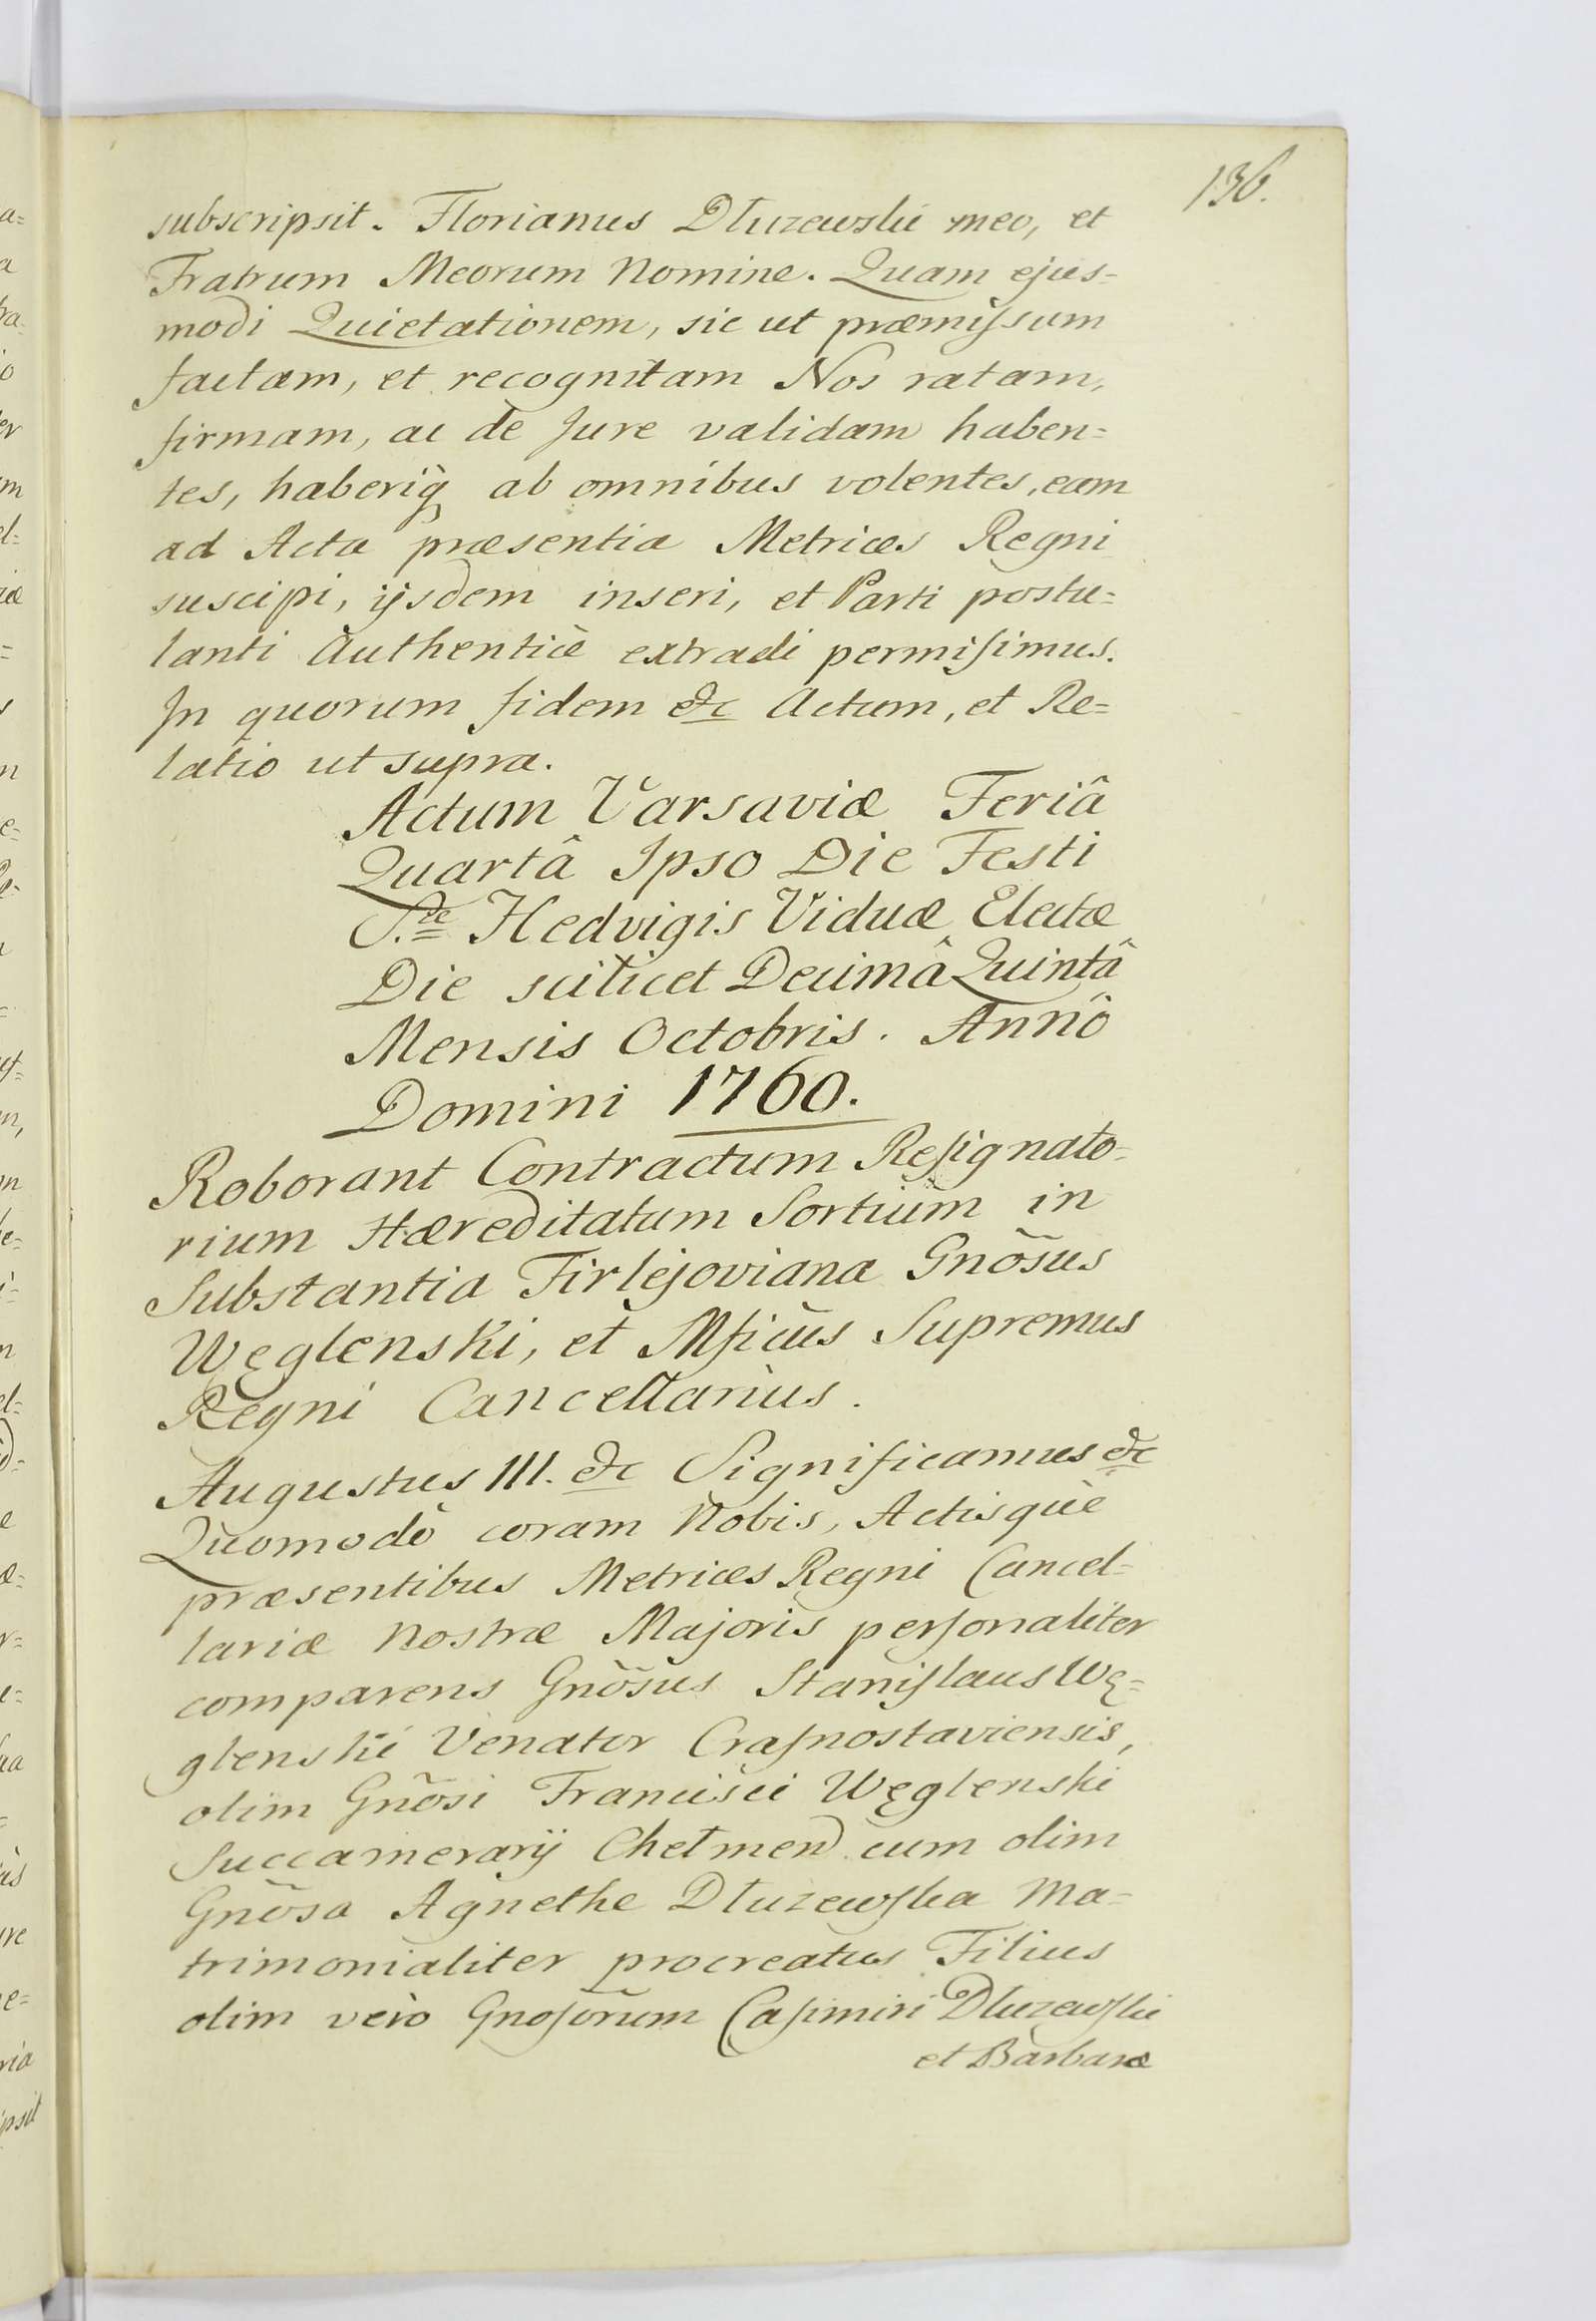 136.
subscripsit. Florianus Dłuzewski meo, et
Fratrum Meorum Nomine. Quam ejus=
modi Quietationem, sic ut præmiſsum
factam, et recognitam Nos ratam,
firmam, ac de Jure validam haben=
tes, haberiq̀ ab omnibus volentes, eam
ad Acta præsentia Metrices Regni
suscipi, ijsdem inseri, et Parti postu=
lanti Authenticè extradi permiſimus.
In quorum fidem &c Actum, et Re=
latio ut supra.
Actum Varsaviæ Feriâ
Quartâ Ipso Die Festi
S.æ Hedvigis Viduæ Electæ
Die scilicet Decimâ Quintâ
Mensis Octobris. Annô
Domini 1760.
Roborant Contractum Reſignato=
rium Hæreditatum Sortium in
Substantia Firlejoviana Gnõsus
Węglenski, et Mficus Supremus
Regni Cancellarius.
Augustus III. &c Significamus &c
Quomodò coram Nobis, Actisquè
præsentibus Metrices Regni Cancel=
lariæ Nostræ Majoris perſonaliter
comparens Gnõsus Staniſlaus Wę=
glenski Venator Craſnostaviensis,
olim Gnõsi Francisci Węglenski
Succamerarij Chełmen cum olim
Gnõsa Agnethe Dłuzewſka Ma=
trimonialiter procreatus Filius
olim verò Gnoſorum Caſimiri Dłuzewſki
et Barbaræ